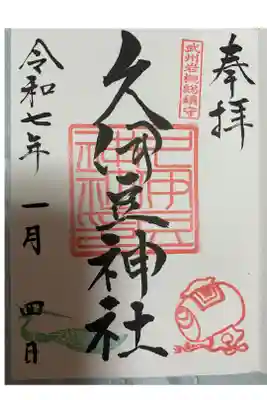 奉拝
武州岩槻総鎮守
久伊豆神社
令和七年 一月 四日